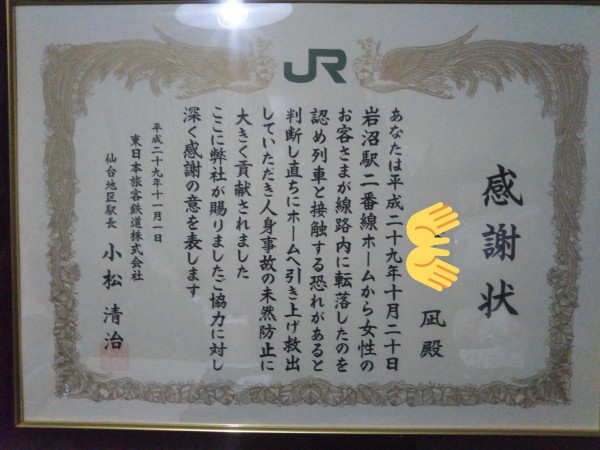 JR
感謝状
凪殿
あなたは平成二十九年十月二十日
岩沼駅二番線ホームから女性の
お客さまが線路内に転落したのを
認め列車と接触する恐れがあると
判断し直ちにホームへ引き上げ救出
していただき人身事故の未然防止に
大きく貢献されました
ここに弊社が賜りましたご協力に対し
深く感謝の意を表します
平成二十九年十一月一日
東日本旅客鉄道株式会社
仙台地区駅長 小松清治